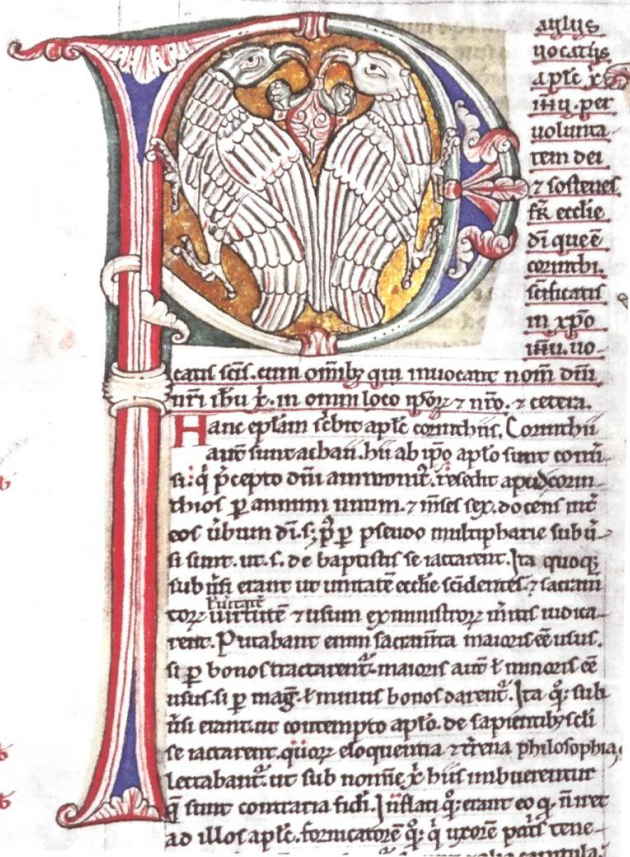 P aulus
vocatus
apłc x̄
ih̄u. per
volunta
tem dei
⁊ sostenes
fr̄ ecclie
dī que ē
corinthi.
sc̄ificatis
in xp̄o
ih̄u. uo-
catis scīs. cum om̄ibꝫ qui inuocant nom̄ dn̄i
nr̄i ih̄u x̄. in omni loco ip̄soꝝ ⁊ nr̄o. ⁊ cetera.
Hanc epl̄am sc̄bit apłc corinthiis. Corinthii
aut̄ sunt achaii. hii ab ip̄o apło sunt
p̄cepto dn̄i ammonit᷒. resedit apud corin-
thios ꝑ annum unum. ⁊ m̄ses sex. docens int̄
eos ūbum dī. s; p̄ ꝑ pseudo multipharie subū-
si sunt. ut .s. de baptistis se iactarent. Ita quoqꝫ
sub ūsi erant ut unitatē ecclie scidentes. ⁊ sacram̄
toꝝ uirtutē ⁊ usum ex ministroꝝ m̄itis iudica-
rent. Putabant enim sacram̄ta maioris ēē usus.
si ꝑ bonos tractarent᷑. maioris aut̄ ł minoris ēē
usus. si ꝑ maḡ. ł minus bonos darent᷑. Ita q̄;. sub
ūsi erant. ut contempto apło. de sapientibꝫ scłi
se iactarent. quoꝝ eloquentia ⁊ t̄rena philosophia
lectabant᷑. ut sub nom̄ie x̄ hiis imbuerentur
q̄ sunt contraria fidei. Inflati q̄;. erant eo q. n̄ iret
ad illos apłc. fornicatorē q̄;. q̇ uxorē pat̄s tene-